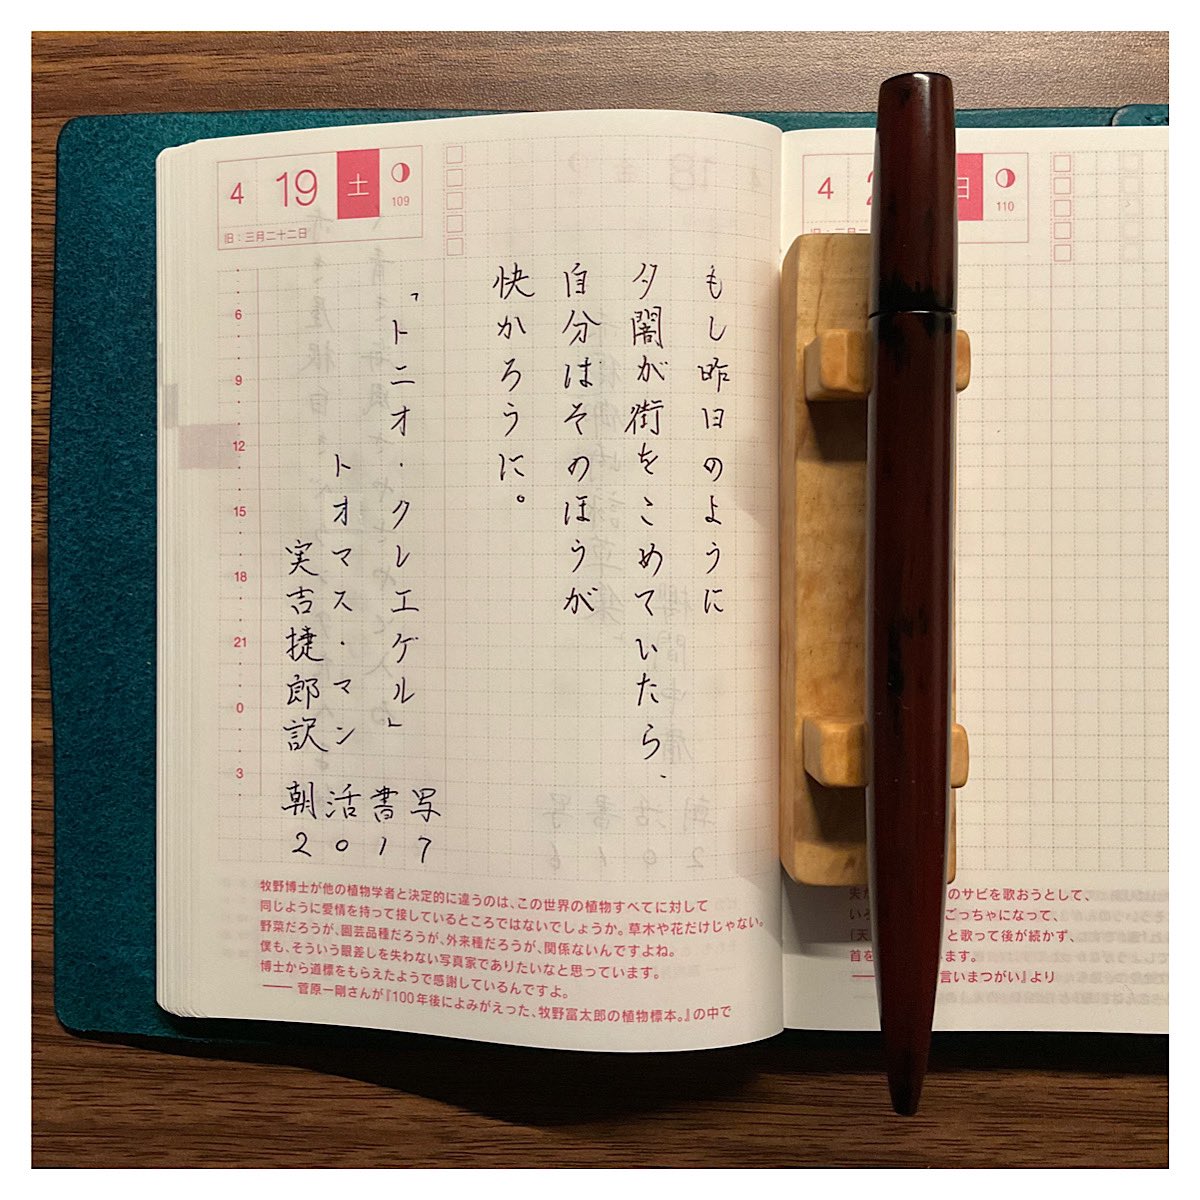 4 19 土
109
旧：三月二十二日
6
9
12
15
18
21
0
3
もし昨日のように
夕闇が街をこめていたら、
自分はそのほうが
快かろうに。
「トニオ・クレエゲル」
トオマス・マン
実吉捷郎訳
朝活書写
2017
牧野博士が他の植物学者と決定的に違うのは、この世界の植物すべてに対して
同じように愛情を持って接しているところではないでしょうか。草木や花だけじゃない。
野菜だろうが、園芸品種だろうが、外来種だろうが、関係ないんですよね。
僕も、そういう眼差しを失わない写真家でありたいなと思っています。
博士から道標をもらえたようで感謝しているんですよ。
―― 菅原一剛さんが『100年後によみがえった、牧野富太郎の植物標本。』の中で
4
日
110
のサビを歌おうとして、
ごっちゃになって、
と歌って後が続かず、
首を
ます。
言いまつがい』より